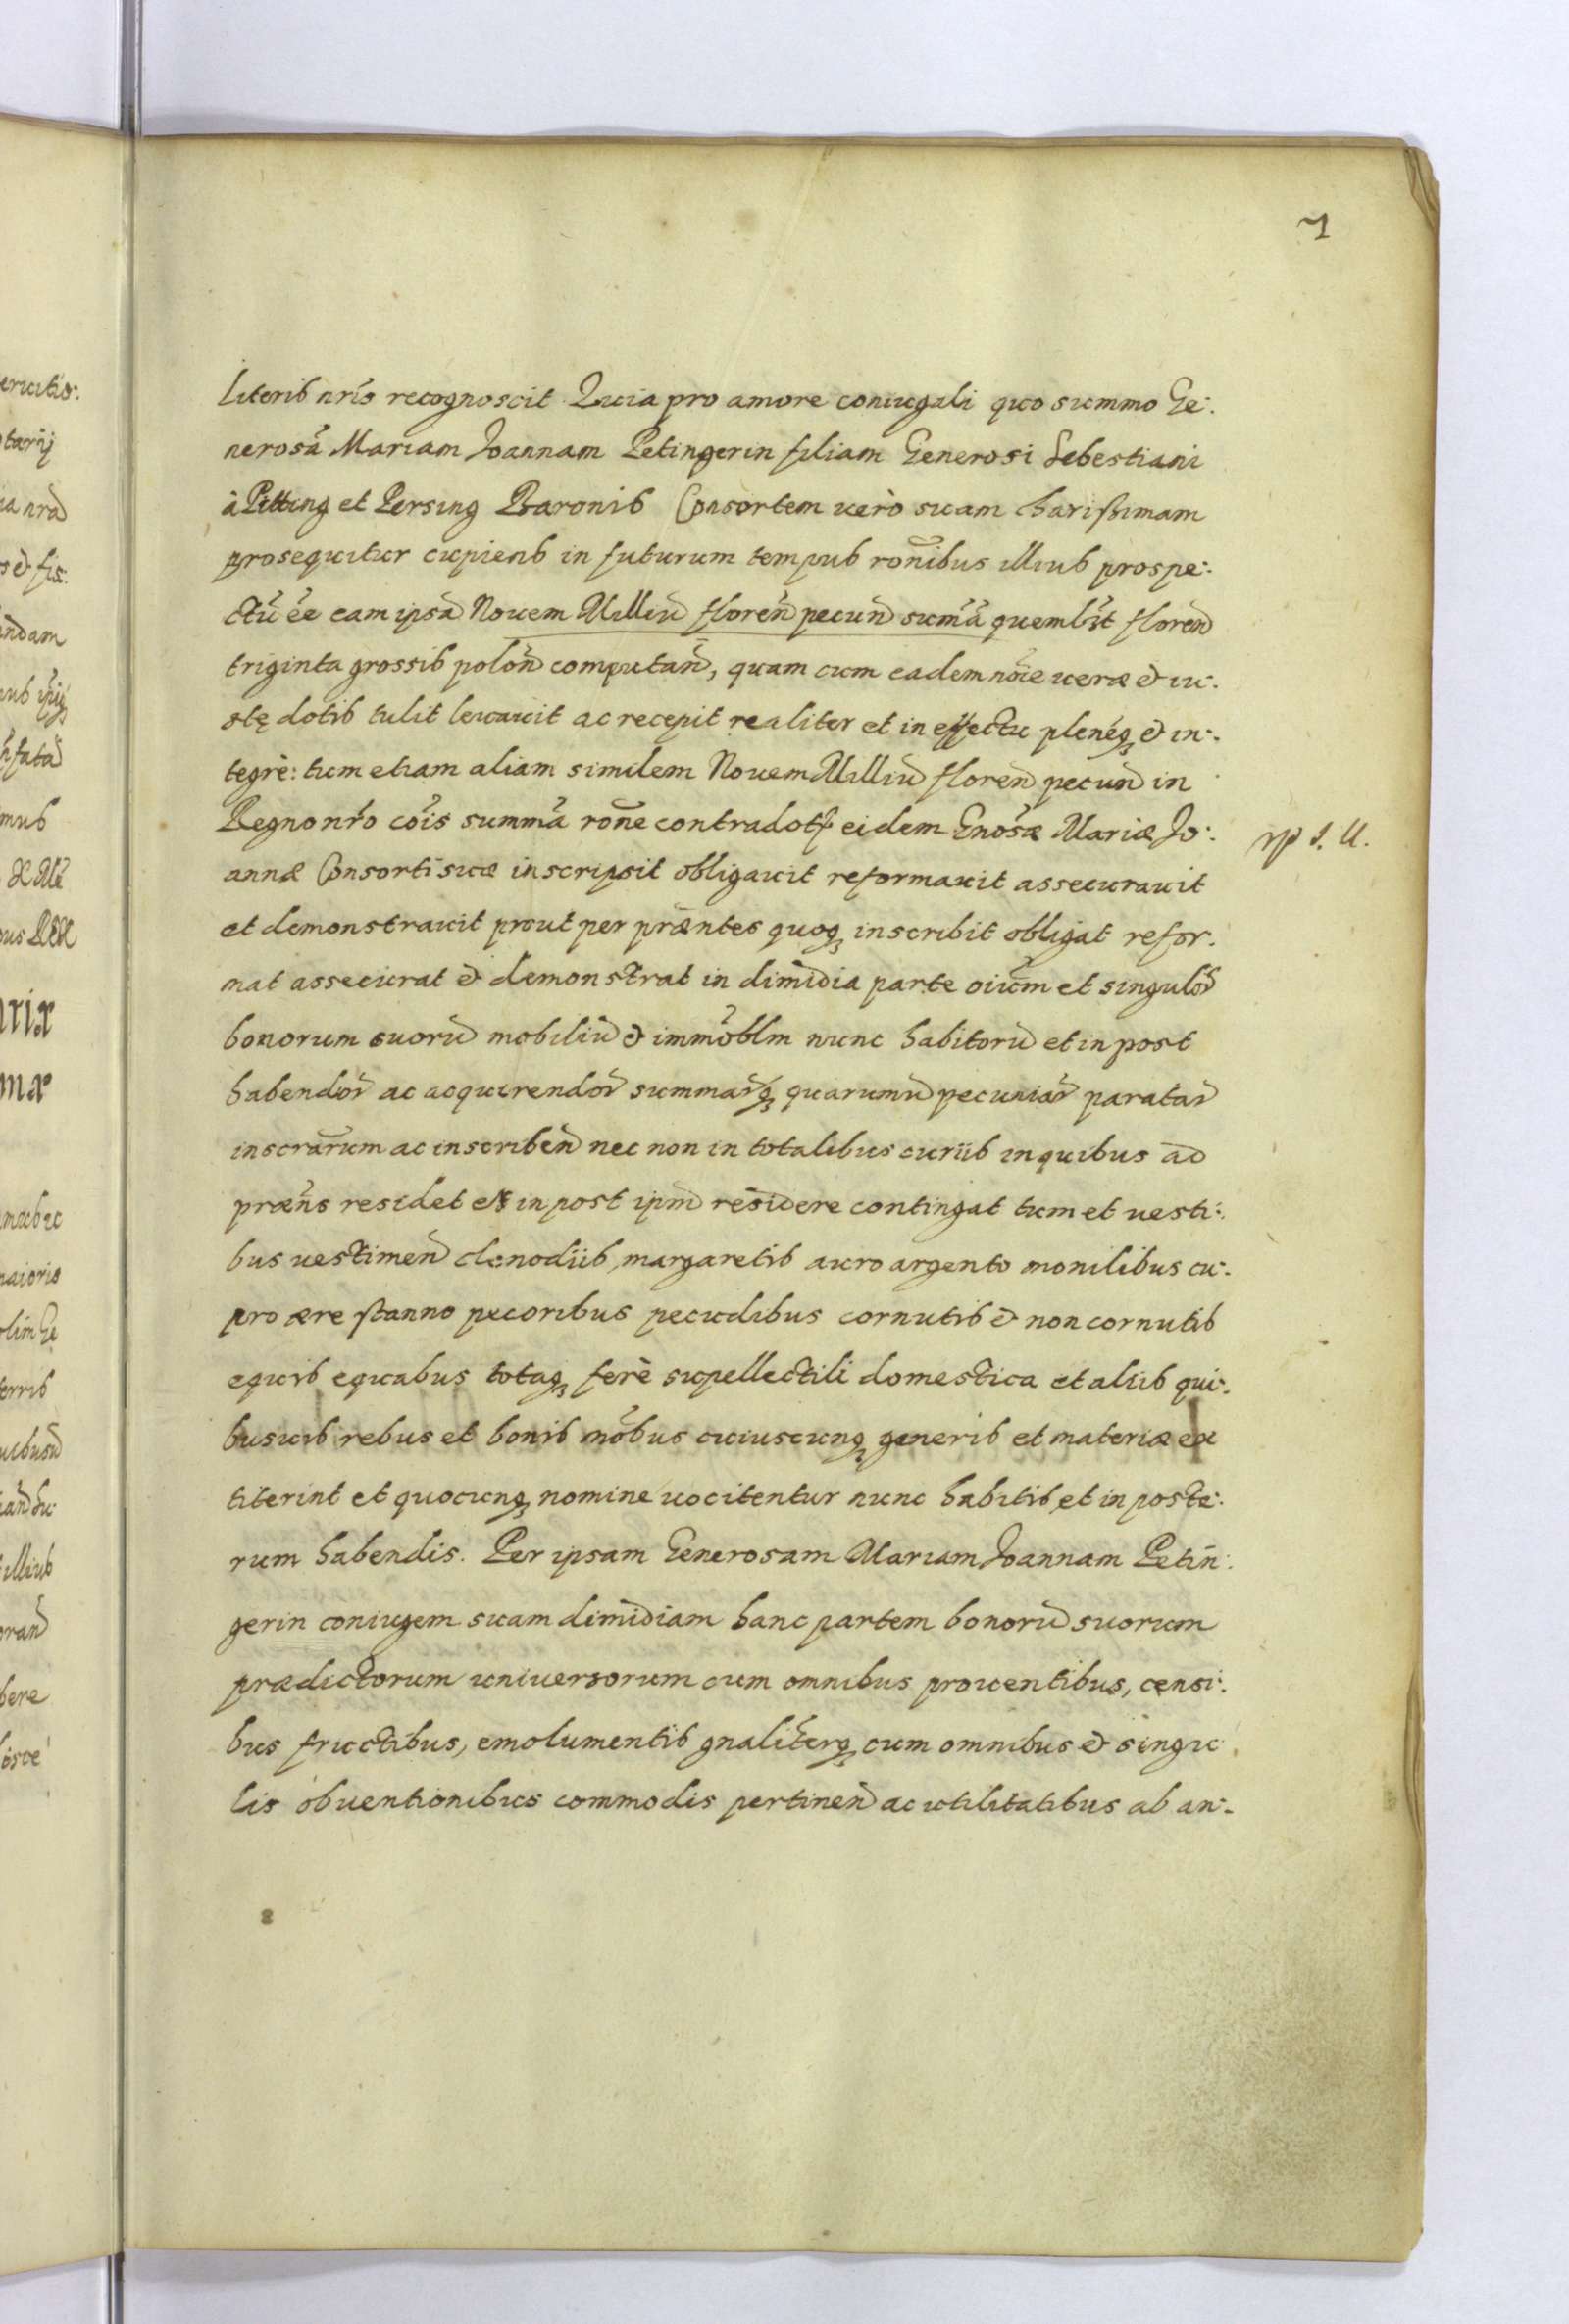 7
Literis nr̃is recognoscit. Quia pro amore coniugali quo summo Ge:
nerosã Mariam Joannam Petingerin filiam Generosi Sebestiani
à Pitting et Persing Baronis Consortem uerò suam charissimam
prosequitur cupiens in futurum tempus rõnibus illius prospe:
ctũ ẽe eam ipsã Nouem Milliũ floreñ pecuñ sum̃ã quemlĩt floreñ
triginta grossis poloñ computañ, quam cum eadem nõie ueræ & iu:
stę dotis tulit leuauit ac recepit realiter et in effectu plenéq & in:
tegrè: tum etiam aliam similem Nouem Milliũ floreñ pecuñ in
Regno nr̃o cõis summã rõne contradotỹ eidem Gnõsæ Mariæ Jo:
rp s. U.
annæ Consorti suæ inscripsit obligauit reformauit assecurauit
et demonstrauit prout per præntes quoq inscribit obligat refor:
mat assecurat & demonstrat in dimidia parte oĩum et singulor̃
bonorum suorũ mobiliũ & immõblm nunc habitorũ et in post
habendor̃ ac acquirendor̃ summar̃q quarumũ pecuniar̃ paratar̃
inscrãrum ac inscribeñ nec non in totalibus curiis in quibus ad
præñs residet et in post ipm̃ residere contingat tum et uesti:
bus uestimeñ clenodiis, margaretis auro argento monilibus cu:
pro ære stanno pecoribus pecudibus cornutis & non cornutis
equis equabus totaq ferè supellectili domestica et aliis qui:
busuis rebus et bonis mõbus cuiuscunq generis et materiæ ex
titerint et quocunq nomine uocitentur nunc habitis et in poste:
rum habendis. Per ipsam Generosam Mariam Joannam Petin:
gerin coniugem suam dimidiam hanc partem bonorũ suorum
prædictorum uniuersorum cum omnibus prouentibus, censi:
bus fructibus, emolumentis gnaliterq cum omnibus & singu
lis obuentionibus commodis pertineñ ac utilitatibus ab an: